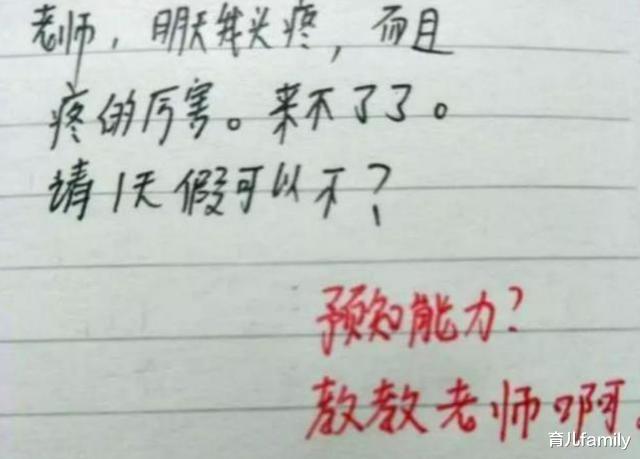 老师，明天我头疼，而且
疼的厉害。来不了了。
请1天假可以不？
预知能力？
教教老师啊。
育儿family